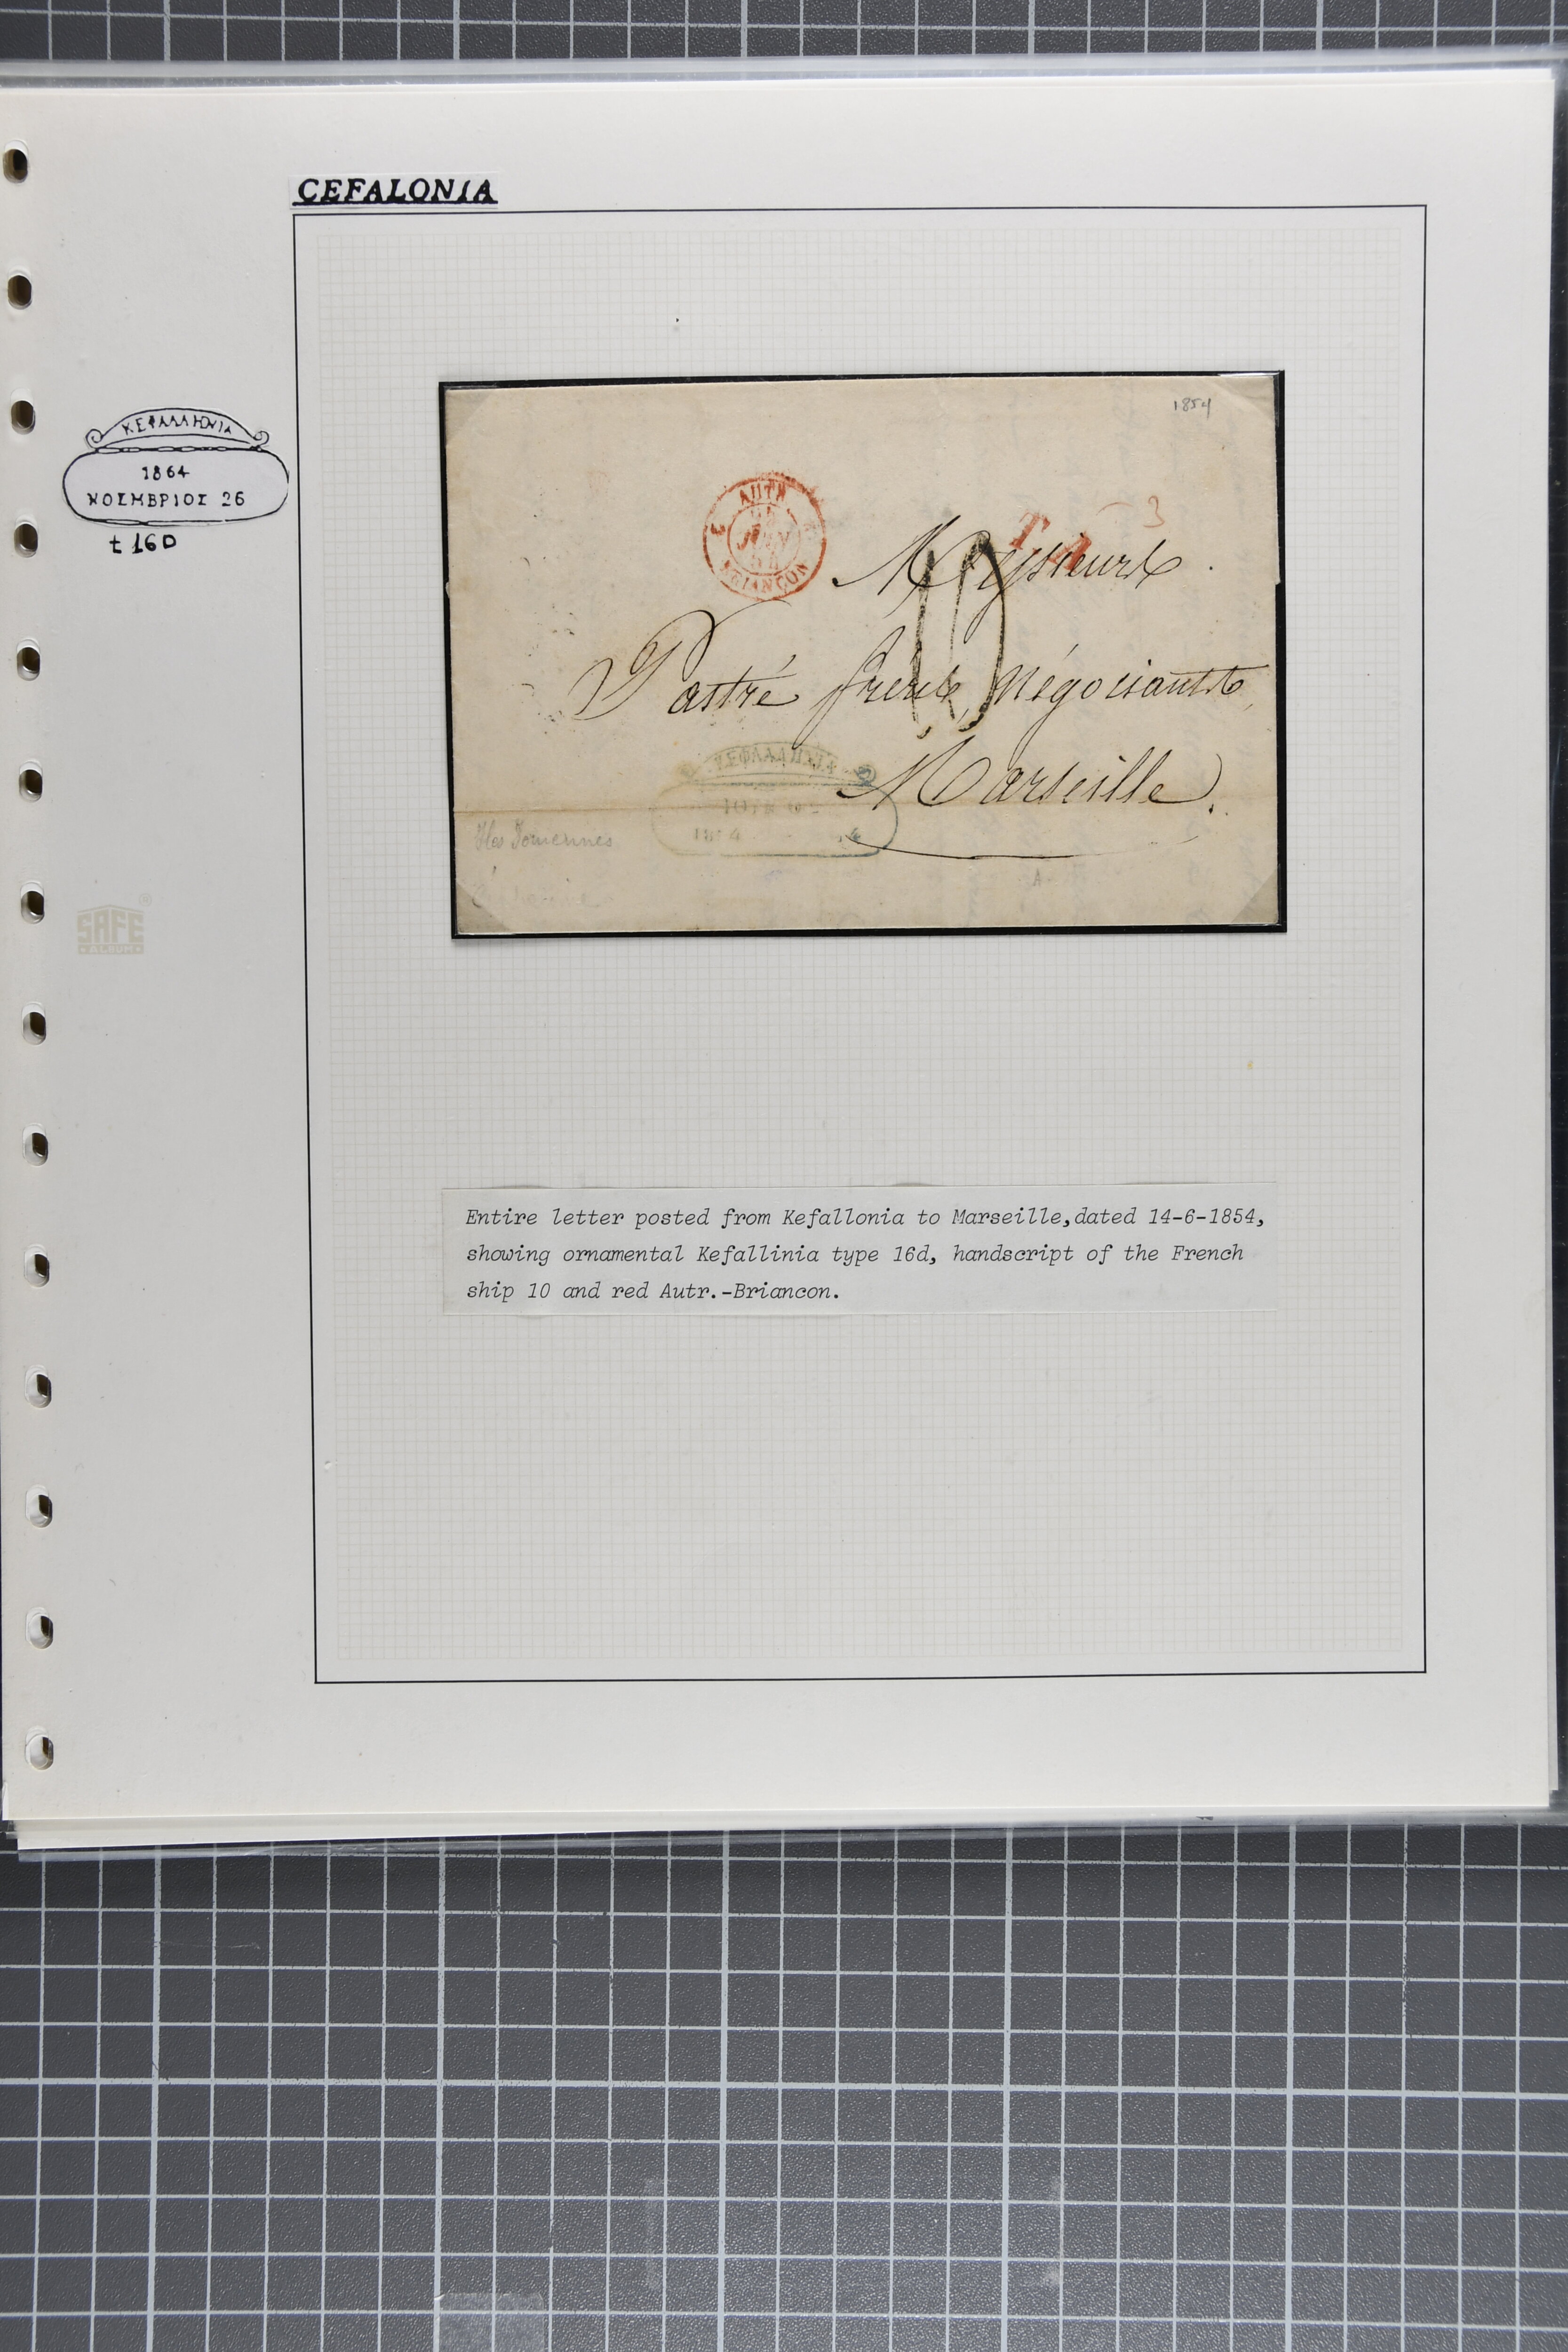 CEFALONIA
ΚΕΦΑΛΛΗΝΙΑ
1864
ΝΟΕΜΒΡΙΟΣ 26
t 16D
1854
AUTR
JUIN
54
BRIANCON
3
Messieurs
10
Pastré frères, Négociants,
Marseille.
ΚΕΦΑΛΛΗΝΙΑ
Iles Ioniennes
SAFE
ALBUM
Entire letter posted from Kefallonia to Marseille,dated 14-6-1854,
showing ornamental Kefallinia type 16d, handscript of the French
ship 10 and red Autr.-Briancon.